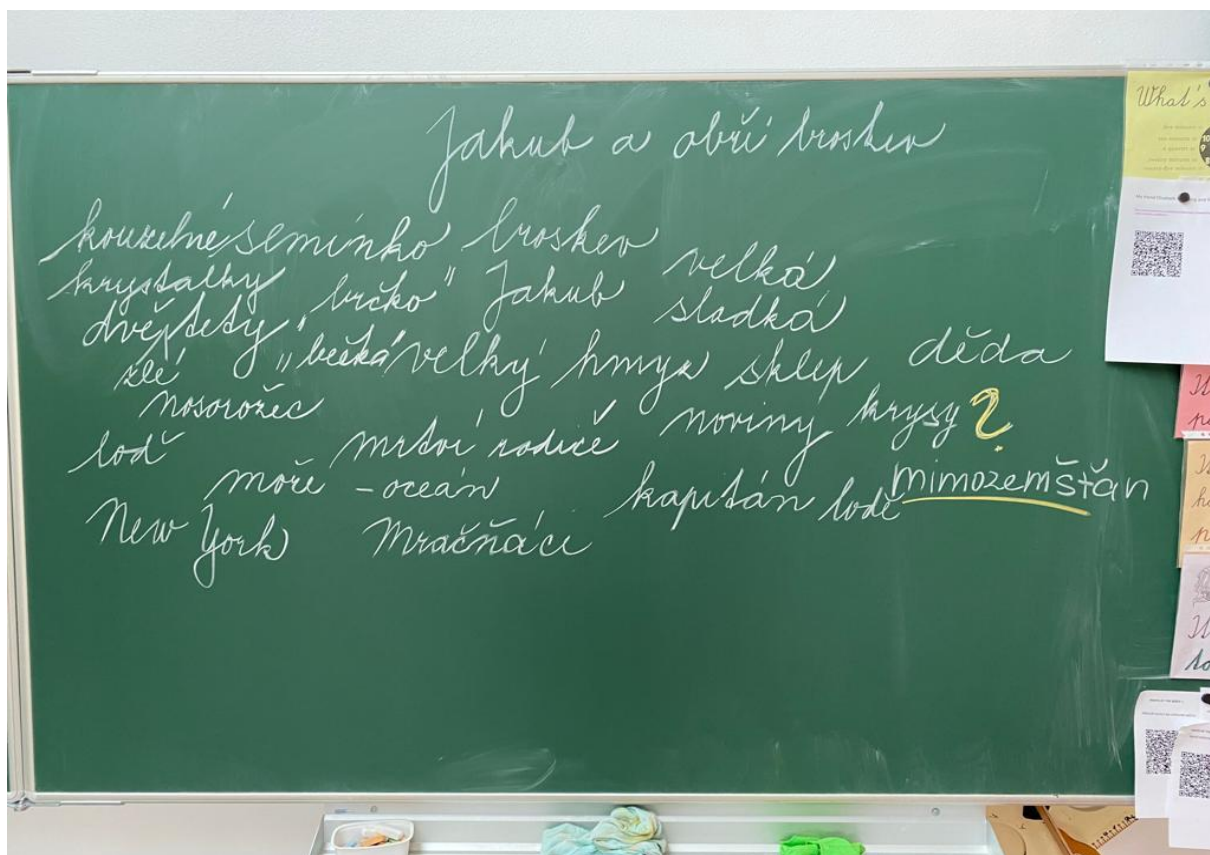 Jakub a obří broskev
kouzelné semínko broskev velká
krystalky „brčko“ Jakub sladká
dvě tety
zlé velký hmyz sklep děda
nosorožec
loď mrtví rodiče noviny krysy ?
moře - oceán kapitán lodě mimozemšťan
New York Mračňáci
What's